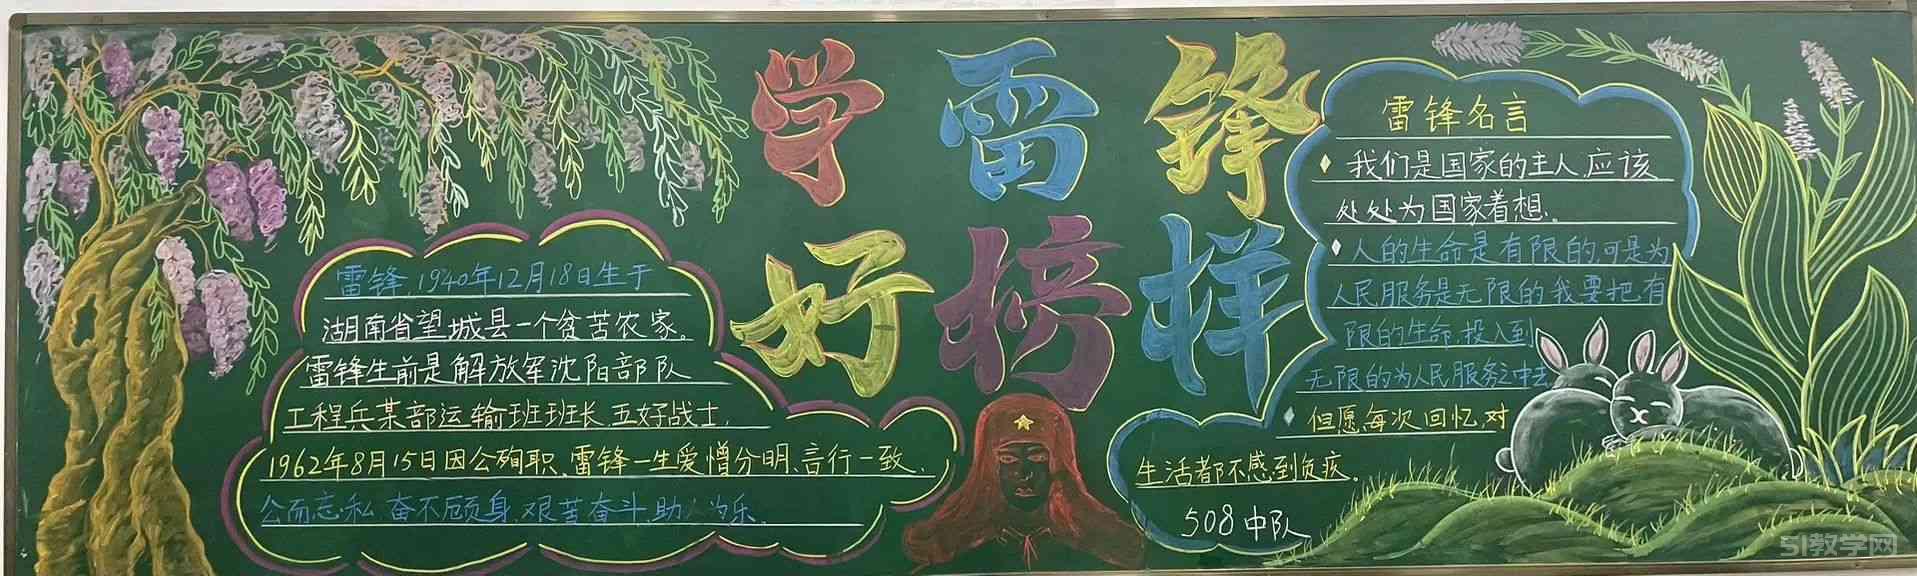 学雷锋
好榜样
雷锋,1940年12月18日生于
湖南省望城县一个贫苦农家。
雷锋生前是解放军沈阳部队
工程兵某部运输班班长,五好战士,
1962年8月15日因公殉职、雷锋一生爱憎分明、言行一致、
公而忘私 奋不顾身、艰苦奋斗、助人为乐、
雷锋名言
我们是国家的主人,应该
处处为国家着想。
人的生命是有限的,可是为
人民服务是无限的 我要把有
限的生命,投入到
无限的为人民服务之中去
但愿每次回忆,对
生活都不感到负疚。
508中队
51教学网